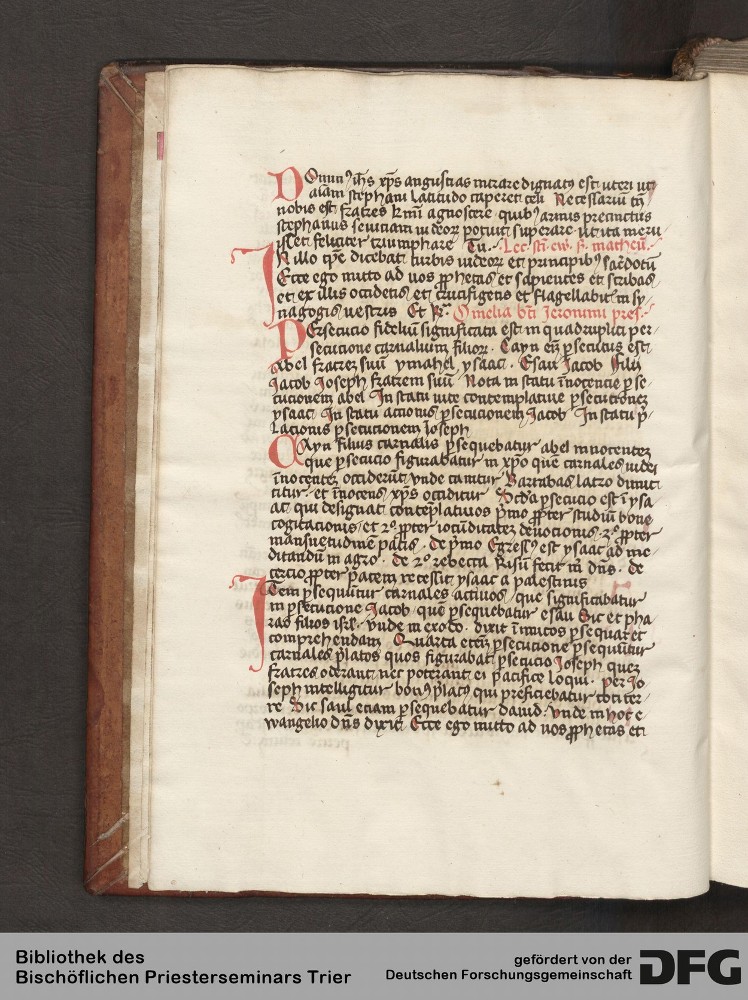 Omin⁹ ih̄s xp̄s angustias intrare dignatꝰ est uteri ut
aīam stephani latitudo caperet celi Necessariū tn̄
nobis est fratres kmi agnoscere quibꝰ armis precinctus
stephanus seuiciam iudeoꝝ potuit superare ut ita meru
isset feliciter triumphare Tu. Lec. sc̄i ew. s. matheū.
In illo tp̄e dicebat turbis iudeoꝝ et principibꝰ sac̄dotū
Ecce ego mitto ad uos ꝓphetas et sapientes et scribas
et ex illis occidetis et crucifigetis et flagellabit in sy
nagogis uestris Et Rͣ. Omelia bt̄i Jeronimi pres.
Persecucio fideliū significata est in quadruplici per
secucione carnalium filioꝝ. Cayn em̄ ꝑsecutus est
Abel fratrem suū ysmahel ysaac. Esau Jacob Filii
Jacob Joseph fratrem suū Nota in statu īnocencie ꝑse
cucionem abel In statu uite contemplatiue ꝑsecucionem
ysaac In statu actionis ꝑsecucionem Jacob In statu p̄
lacionis ꝑsecucionem Joseph
Cayn filius carnalis ꝑsequebatur abel innocentem
que ꝑsecucio figurabatur in xp̄o quē carnales iudei
īnocentem occiderūt vnde canitur Barrabas latro dimit
titur et īnocens xp̄s occiditur Scd̄a ꝑsecucio est ī ysa
ac qui designat contēplatiuos p̄mo ꝓpter studiū bone
cogitacionis et 2º ꝓpter iocūditatem deuocionis 3º ꝓpter
mansuetudinē pacis. de p̄mo Egressꝰ est ysaac ad me
ditandū in agro. de 2º rebecca Risū fecit m̄ dn̄s. de
tercio ꝓpter pacem recessit ysaac a palestinis
Item ꝑsequūtur carnales actiuos, que significabatur
in ꝑsecucione Jacob quē ꝑsequebatur esau Sic et pha
rao filios isrl̄. vnde in exodo. dixit inimicus ꝑsequar et
comprehendam Quarta etem̄ ꝑsecucione ꝑsequūtur
carnales p̄latos quos figurabat ꝑsecucio Joseph quem
fratres oderant nec poterant ei pacifice loqui. per Jo
seph intelligitur bonꝰ p̄latꝰ qui preficiebatur toti ter
re Sic saul etiam ꝑsequebatur dauid. vnde in hoc e
wangelio dn̄s dixit Ecce ego mitto ad uos ꝓphetas et
Bibliothek des
Bischöflichen Priesterseminars Trier
gefördert von der
Deutschen Forschungsgemeinschaft
DFG